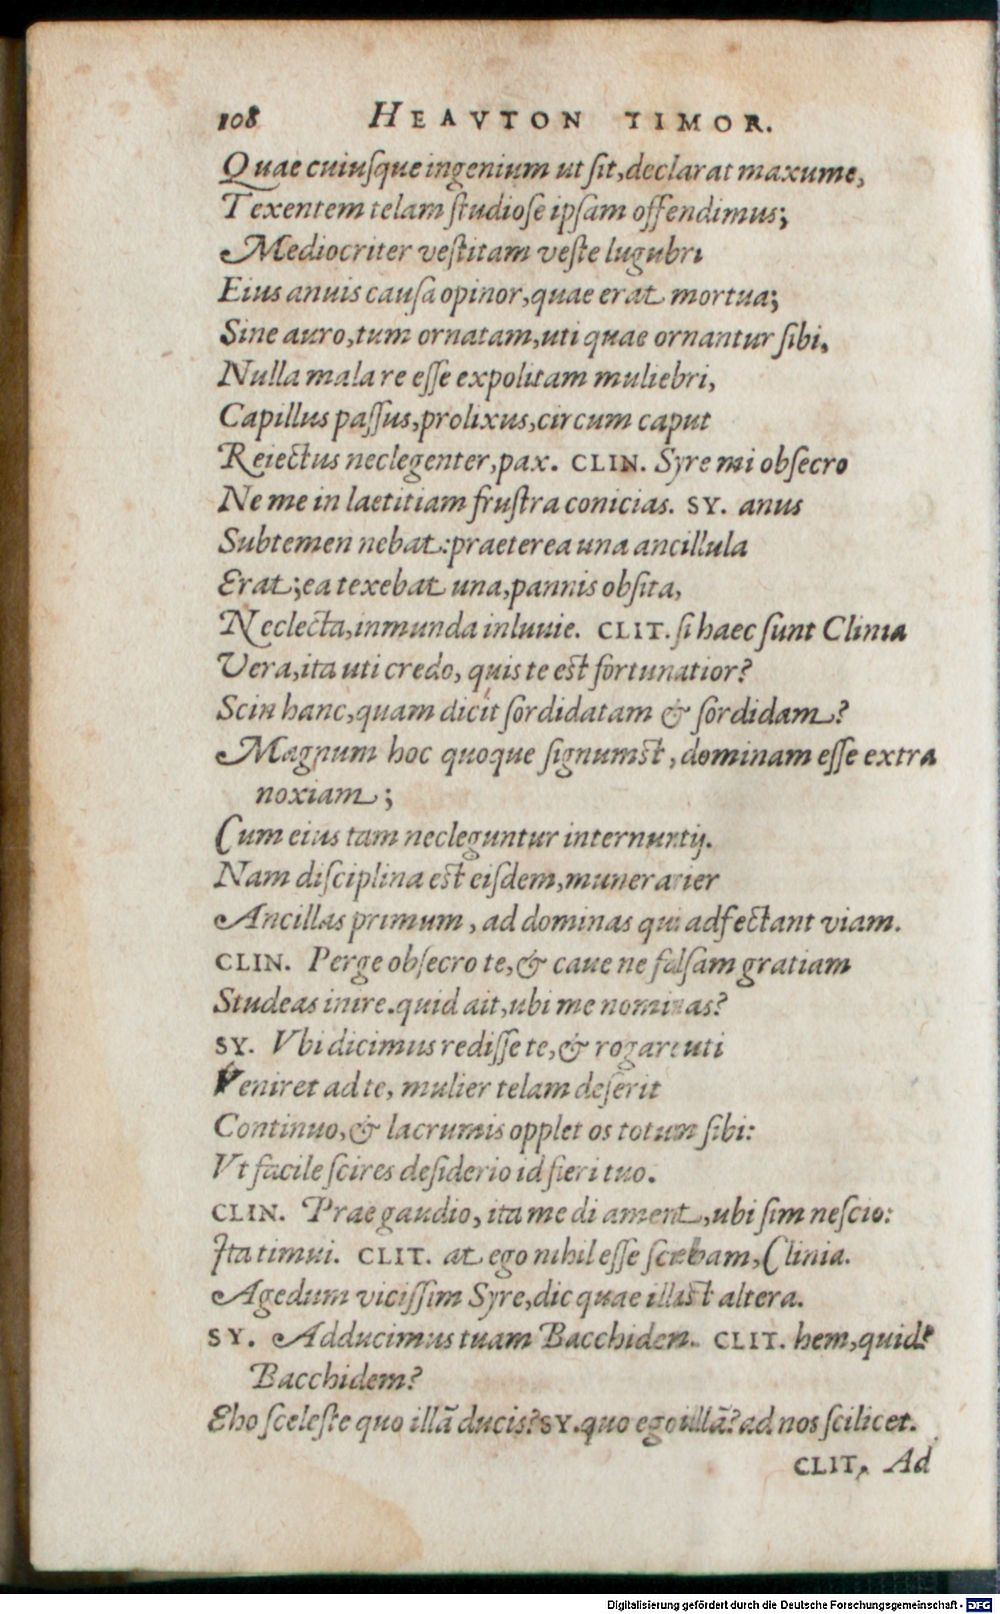 108 HEAVTON TIMOR.
Quae cuiusque ingenium ut sit, declarat maxume,
Texentem telam studiose ipsam offendimus;
Mediocriter vestitam veste lugubri
Eius anuis causa opinor, quae erat mortua;
Sine auro, tum ornatam, uti quae ornantur sibi,
Nulla mala re esse expolitam muliebri,
Capillus passus, prolixus, circum caput
Reiectus neclegenter, pax. CLIN. Syre mi obsecro
Ne me in laetitiam frustra conicias. SY. anus
Subtemen nebat: praeterea una ancillula
Erat; ea texebat una, pannis obsita,
Neclecta, inmunda inluuie. CLIT. si haec sunt Clinia
Vera, ita uti credo, quis te est fortunatior?
Scin hanc, quam dicit sordidatam & sordidam?
Magnum hoc quoque signumst, dominam esse extra
noxiam;
Cum eius tam necleguntur internuntij.
Nam disciplina est eisdem, munerarier
Ancillas primum, ad dominas qui adfectant viam.
CLIN. Perge obsecro te, & caue ne falsam gratiam
Studeas inire. quid ait, ubi me nominas?
SY. Vbi dicimus redisse te, & rogare uti
Veniret ad te, mulier telam deserit
Continuo, & lacrumis opplet os totum sibi:
Vt facile scires desiderio id fieri tuo.
CLIN. Prae gaudio, ita me di ament, ubi sim nescio:
Ita timui. CLIT. at ego nihil esse scibam, Clinia.
Agedum vicissim Syre, dic quae illast altera.
SY. Adducimus tuam Bacchidem. CLIT. hem, quid?
Bacchidem?
Eho sceleste quo illã ducis? SY. quo ego illã? ad nos scilicet.
CLIT. Ad
Digitalisierung gefördert durch die Deutsche Forschungsgemeinschaft - DFG